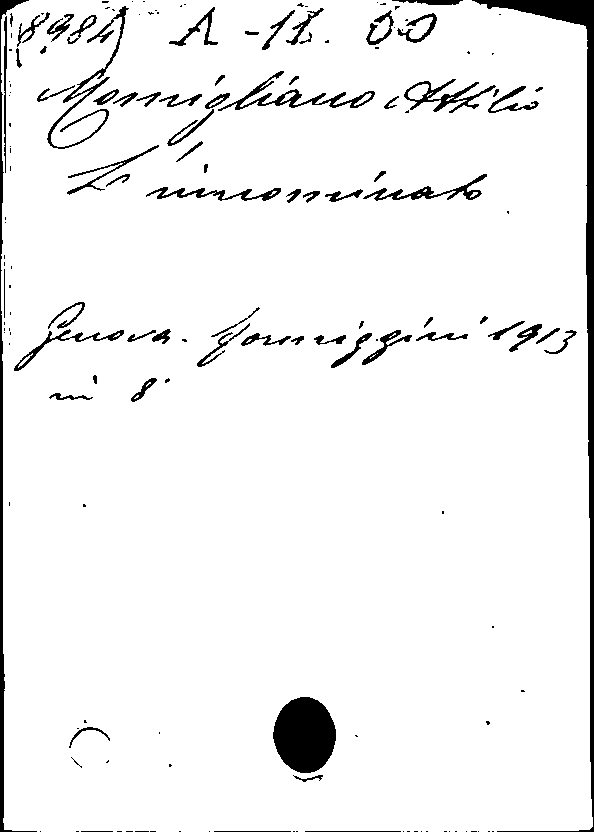 (8984) A - 11. OO
Momigliano Attilio
L'innominato
Genova. Formiggini 1913
in 8°